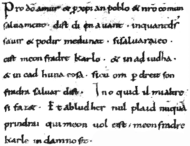 Pro dō amur & p xp̄ian poblo & nrō comun
saluament. dist di en auant. inquantds
sauir & podir medunat. sisaluaraieo
cist meon fradre karlo. & in adiudha
& in cad huna cosa. sicū om p dreit son
fradra saluar dist. Ino quid il mialtre
si faz&. Et abludher nul plaid nūquā
prindrai qui meon uol cist. meon fradre
karle in damno sit.